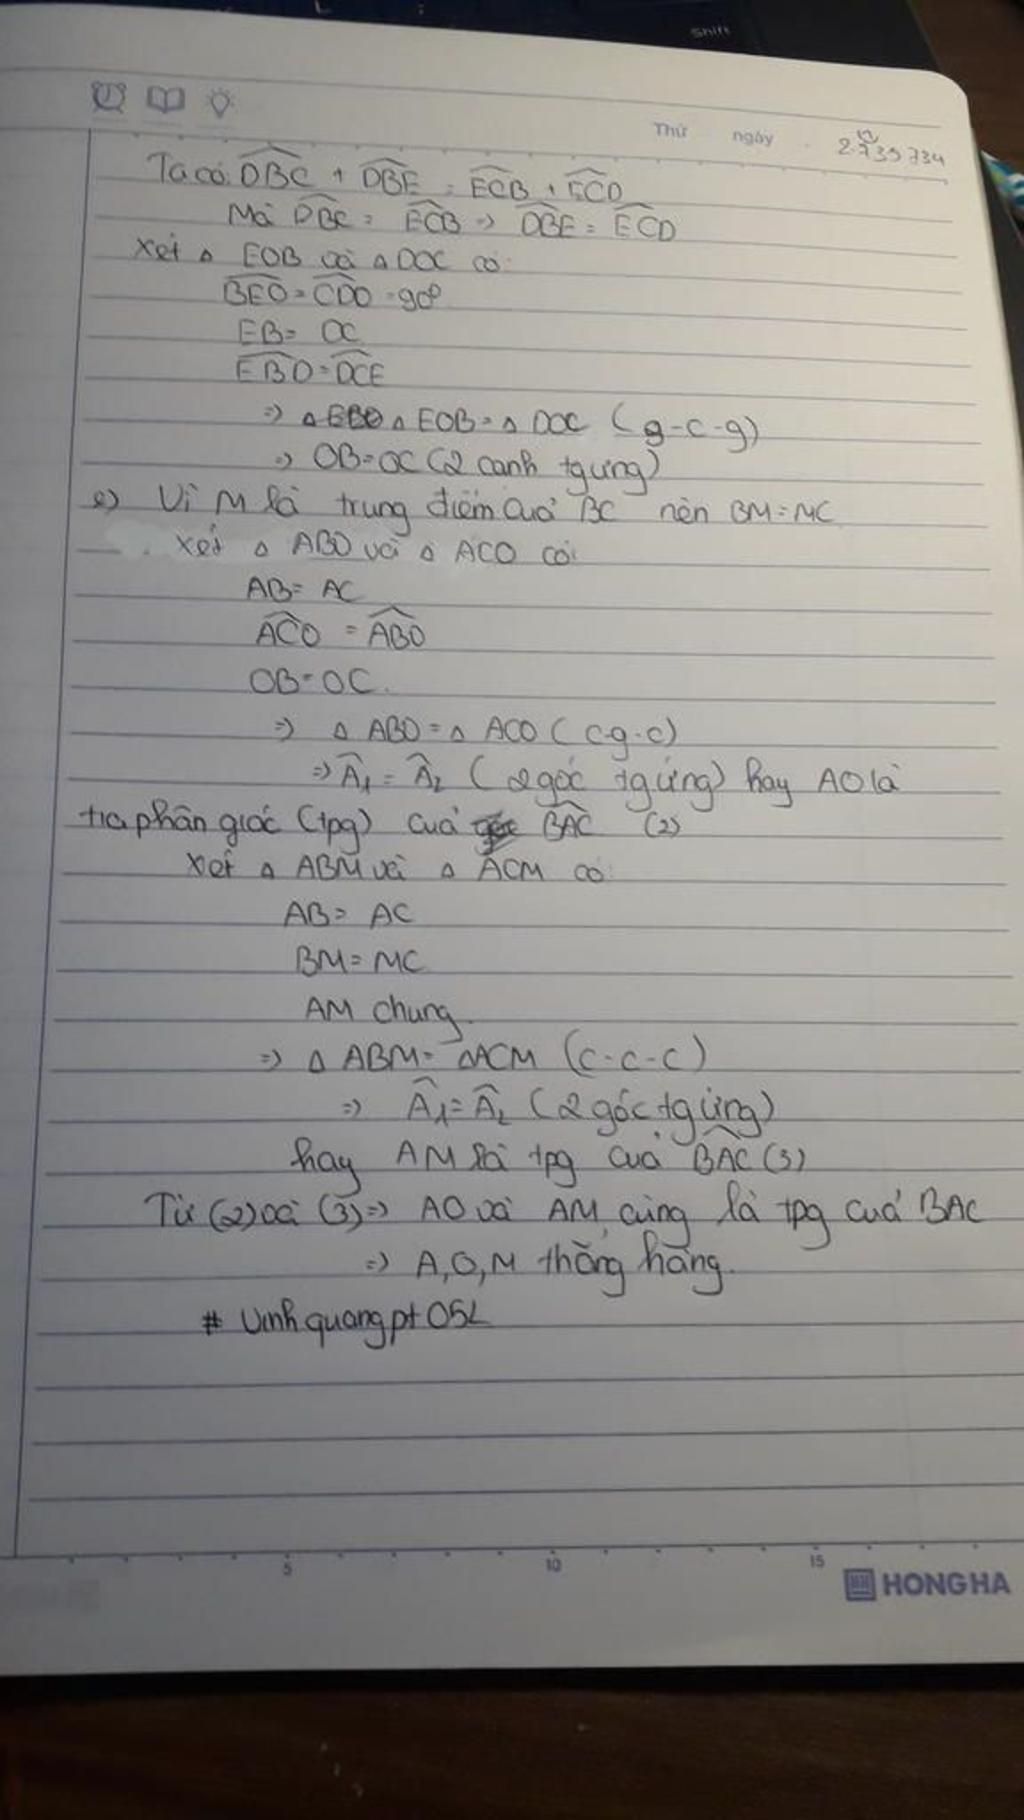 Shift
Thứ ngày
2.735734
Ta có: DBC + DBE = ECB + ECD
Mà DBC = ECB => DBE = ECD
Xét △ EOB và △ DOC có:
BEO = CDO = 90⁰
EB = DC
EBO = DCE
=> △ EOB = △ DOC (g-c-g)
=> OB = OC (2 cạnh tg ứng)
e) Vì M là trung điểm của BC nên BM = MC
Xét △ ABO và △ ACO có:
AB = AC
ACO = ABO
OB = OC.
=> △ ABO = △ ACO (c.g.c)
=> A₁ = A₂ (2 góc tg ứng) hay AO là
tia phân giác (tpg) của BAC (2)
Xét △ ABM và △ ACM có:
AB = AC
BM = MC
AM chung.
=> △ ABM = △ACM (c-c-c)
=> A₁ = A₂ (2 góc tg ứng)
hay AM là tpg của BAC (3)
Từ (2) và (3) => AO và AM cùng là tpg của BAC
=> A, O, M thẳng hàng.
# Vinhquangpt05L
5 10 15
HONG HA